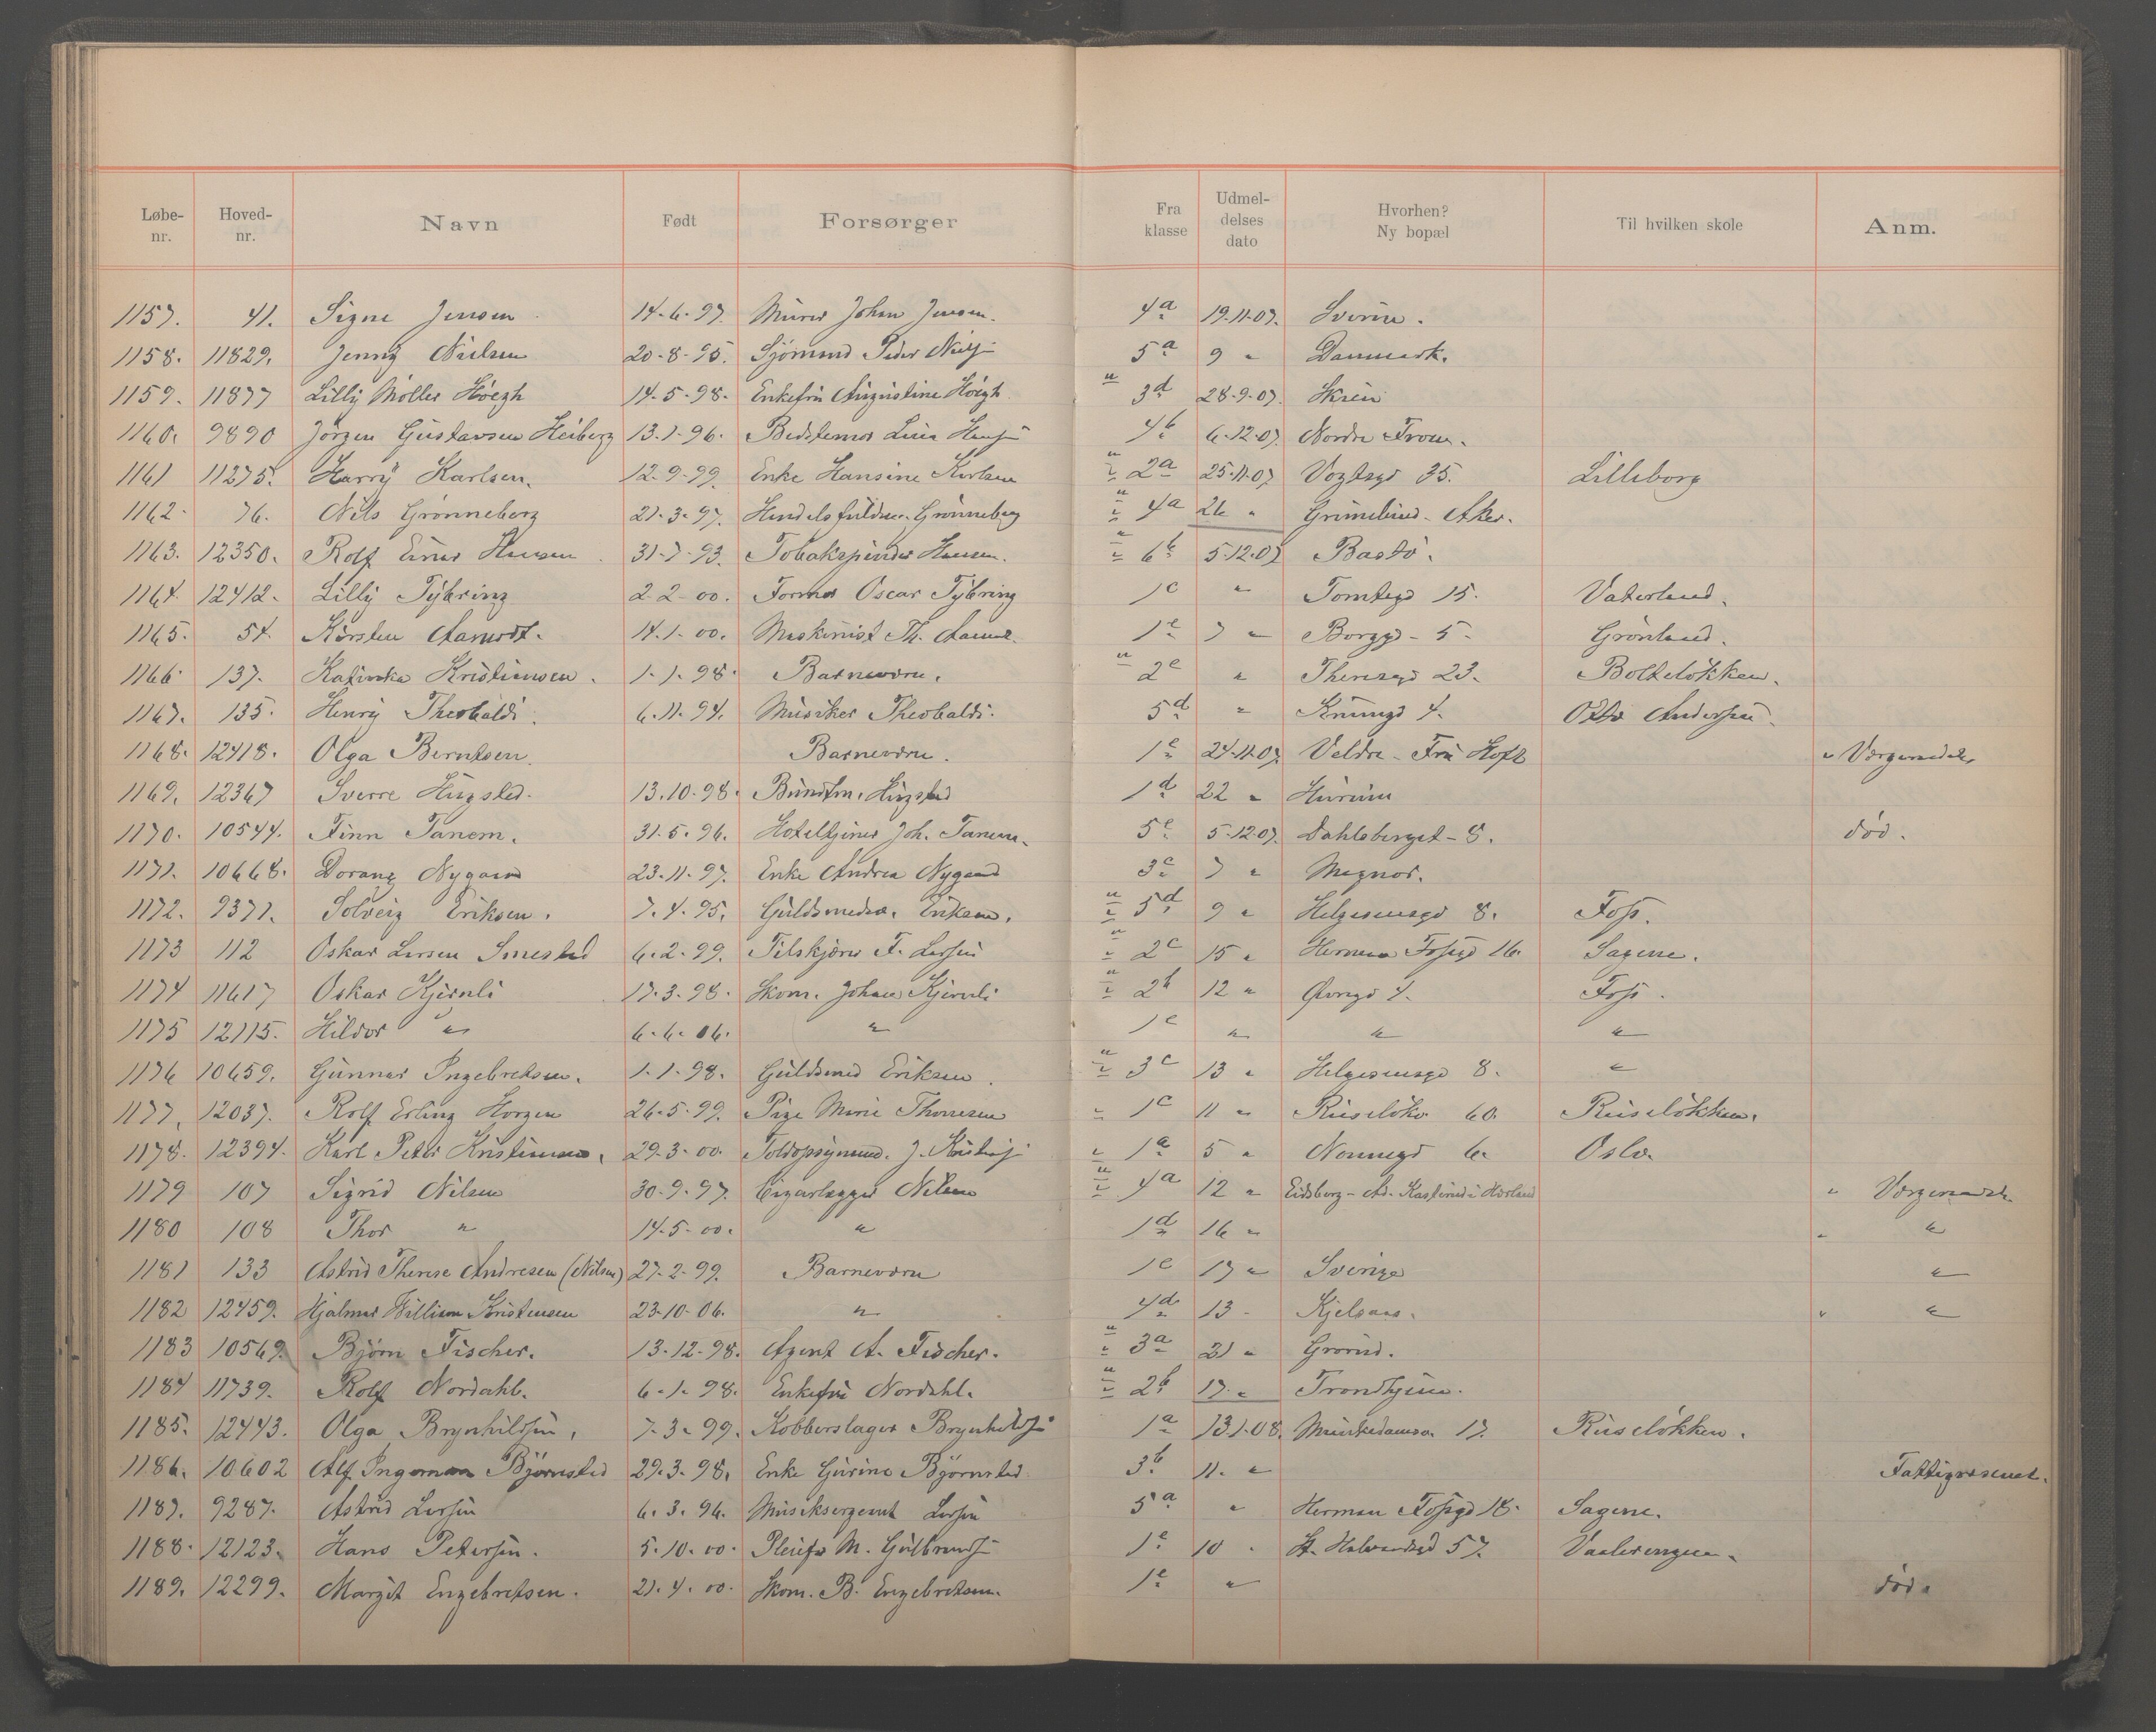 Løbe-nr. Hoved-nr. Navn Født Forsørger Fra klasse Udmel-delses dato Hvorhen? Ny bopæl Til hvilken skole Anm.
1157. 41. Signe Jensen 14-6-97. Murer Johan Jensen. 4a 19-11-07.
1158. 11829. Jenny Nielsen 20-8-95. Sjømand Peder 5a 9 " Danmark.
1159. 11877 Lilly Møller Høegh 14-5-98. Enkefru Augustine Høegh " 3d 28-9-07. Skien
1160. 9890 Jørgen Gustavsen Heiberg 13-1-96. Bedstemor Lina 4b 6-12-07. Nordre
1161 11275. Harry Karlsen. 12-9-99. Enke Hansine Karlsen " 2a 25-11-07 Vogtsgd 35. Lilleborg
1162. 76. Nils Grønneberg 21-3-97. Grønneberg " 4a 26 " Grimelund - Aker.
1163. 12350. Rolf Einar Hansen 31-7-93. Tobakspinder Hansen. " 6b 5-12-07 Bastø.
1164. 12412. Lilly Tybring 2-2-00. Former Oscar Tybring 1c " Tomtegd 15. Vaterland.
1165. 54. Karsten Aamodt. 14-1-00. Maskinist Th. 1e 7 " Borggd - 5. Grønland.
1166. 137. Katinka Kristiansen. 1-1-98. Barnevern. " 2e " Theresegd 23. Bolteløkken.
1167. 135. Henry Theobaldi. 6-11-94. Musiker Theobaldi. 5d " 4. Otto Anderssen.
1168. 12418. Olga Berntsen. Barnevern. 1e 24-11-07 Veldre - Fru Hoft "
1169. 12367 Sverre Hugsted. 13-10-98. Hugsted 1d 22 " Hurum
1170. 10544. Finn Tanem. 31-5-96. Hoteltjener Joh. Tanem. 5e 5-12-07. Dahlsberget - 8. død.
1171. 10668. Nygaard 23-11-97. Enke Andrea Nygaard 3c 7 " Magnor.
1172. 9371. Solveig Eriksen. 7-4-95. Guldsmeds. Eriksen. " 5d 9 " Helgesensgd 8. Foss.
1173 112 Oskar Larsen Smestad 6-2-99. Filskjærer F. Larssen " 2c 15 " Herman Fossgd 16. Sagene.
1174 11617 Oskar Kjernli 17-3-98. Skom. Johan Kjernli " 2b 12 " 4. Foss.
1175 12115. Hildor " 6-6-06. " 1e " " "
1176 10659. Gunnar Ingebretsen. 1-1-98. Guldsmed Eriksen. " 3c 13 " Helgesensgd 8. "
1177. 12037. Rolf Erling Horgen 26-5-99. Pige Marie Thoresen " 1c 11 " Ruseløkv 60. Ruseløkken.
1178. 12394. Karl Peter Kristiansen. 29-3-00. Toldopsynsmd. J. " 1a 5 " Nonnegd 6. Oslo.
1179 107 Sigrid Nilsen 30-9-97. Nilsen " 4a 12 " Eidsberg - "
1180 108 Thor " 14-5-00. " 1d 16 " " "
1181 133 Astrid Therese Andresen (Nilsen) 27-2-99. Barnevern 1e 17 " Sverige "
1182 12459. Hjalmar William Kristensen 23-10-06. " 4d 13 - Kjelsaas. " "
1183 10569. Bjørn Fischer. 13-12-98. Agent A. Fischer. " 3a 21 " Grorud.
1184 11739. Rolf Nordahl. 6-1-98. Enkefru Nordahl. " 2b 17. " Trondhjem.
1185. 12443. Olga Brynhildsen. 7-3-99. Kobberslager Brynhildsen 1a 13.1-08. Munkedamsv. 17. Ruseløkken.
1186. 10602 Alf Ingeman Bjørnstad 29.3.98. Enke Gurine Bjørnstad 3b 11. " Fattigvæsenet.
1187. 9287. Astrid Larsen 6.3.96. Musiksergeant Larsen 5a " Herman Fossgd 18. Sagene.
1188. 12123. Hans Peterssen. 5-10-00. Pleiefar M. Gulbrandsen 1e 10 . St. Halvardsgd 57. Vaalerengen.
1189. 12299. Margit Engebretsen. 21-4-00. Skom. B. Engebretsen. 1e " død.